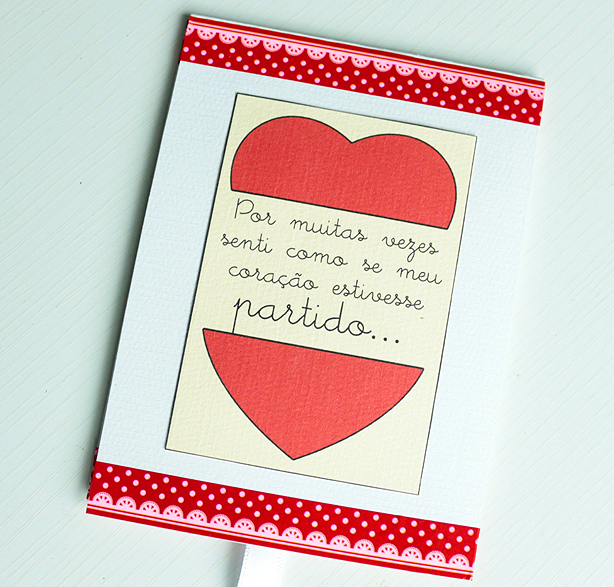 Por muitas vezes
senti como se meu
coração estivesse
partido...